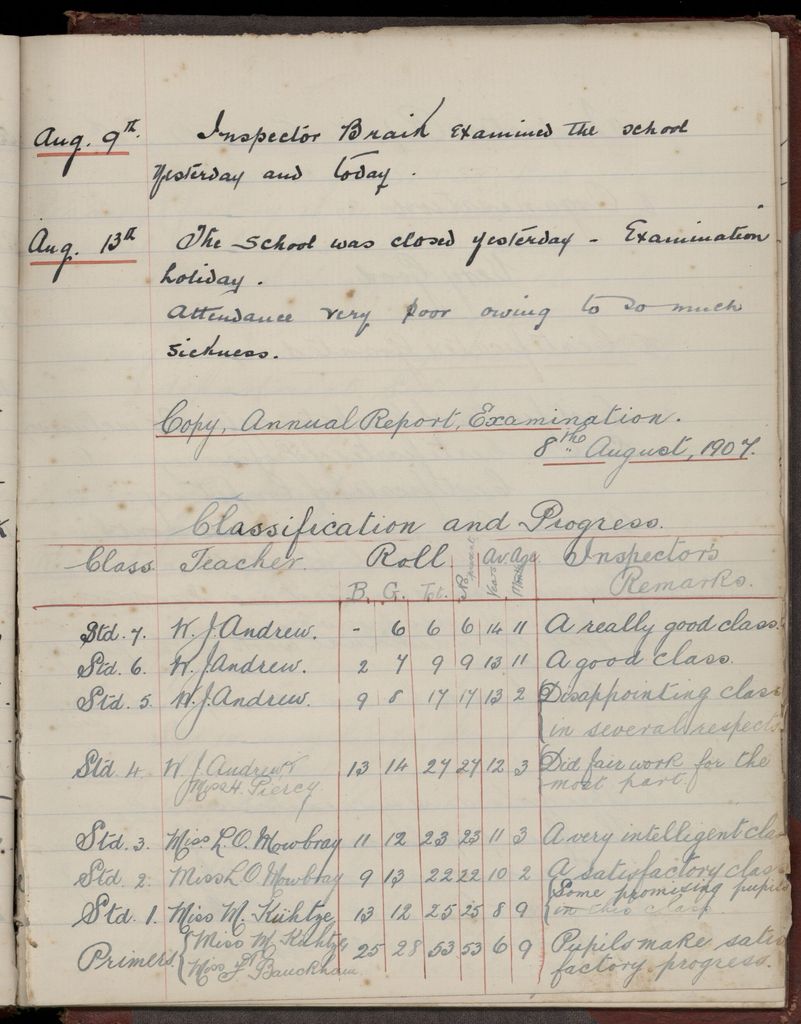 Aug. 9th. Inspector Braik examined the school
yesterday and today.
Aug. 13th The school was closed yesterday - Examination
holiday.
Attendance very poor owing to so much
sickness.
Copy, Annual Report, Examination.
8th August, 1907.
Classification and Progress.
Class Teacher Roll No. present Av. Age Inspector's
Remarks.
B. G. Tot. Years Months
Std. 7. W. J. Andrew. - 6 6 6 14 11 A really good class.
Std. 6. W. J. Andrew. 2 7 9 9 13 11 A good class.
Std. 5. W. J. Andrew. 9 8 17 17 13 2 Disappointing class
in several respects
Std. 4. W. J. Andrew 13 14 27 27 12 3 Did fair work for the
Miss H. Piercy. most part.
Std. 3. Miss L. O. Mowbray 11 12 23 23 11 3 A very intelligent cla
Std. 2. Miss L O Mowbray 9 13 22 22 10 2 A satisfactory clas
Some promising pupils
Std. 1. Miss M. Kühtze 13 12 25 25 8 9 in this class.
Primers Miss M. Kühtze 25 28 53 53 6 9 Pupils make satis
Miss F. Bauckham. factory progress.